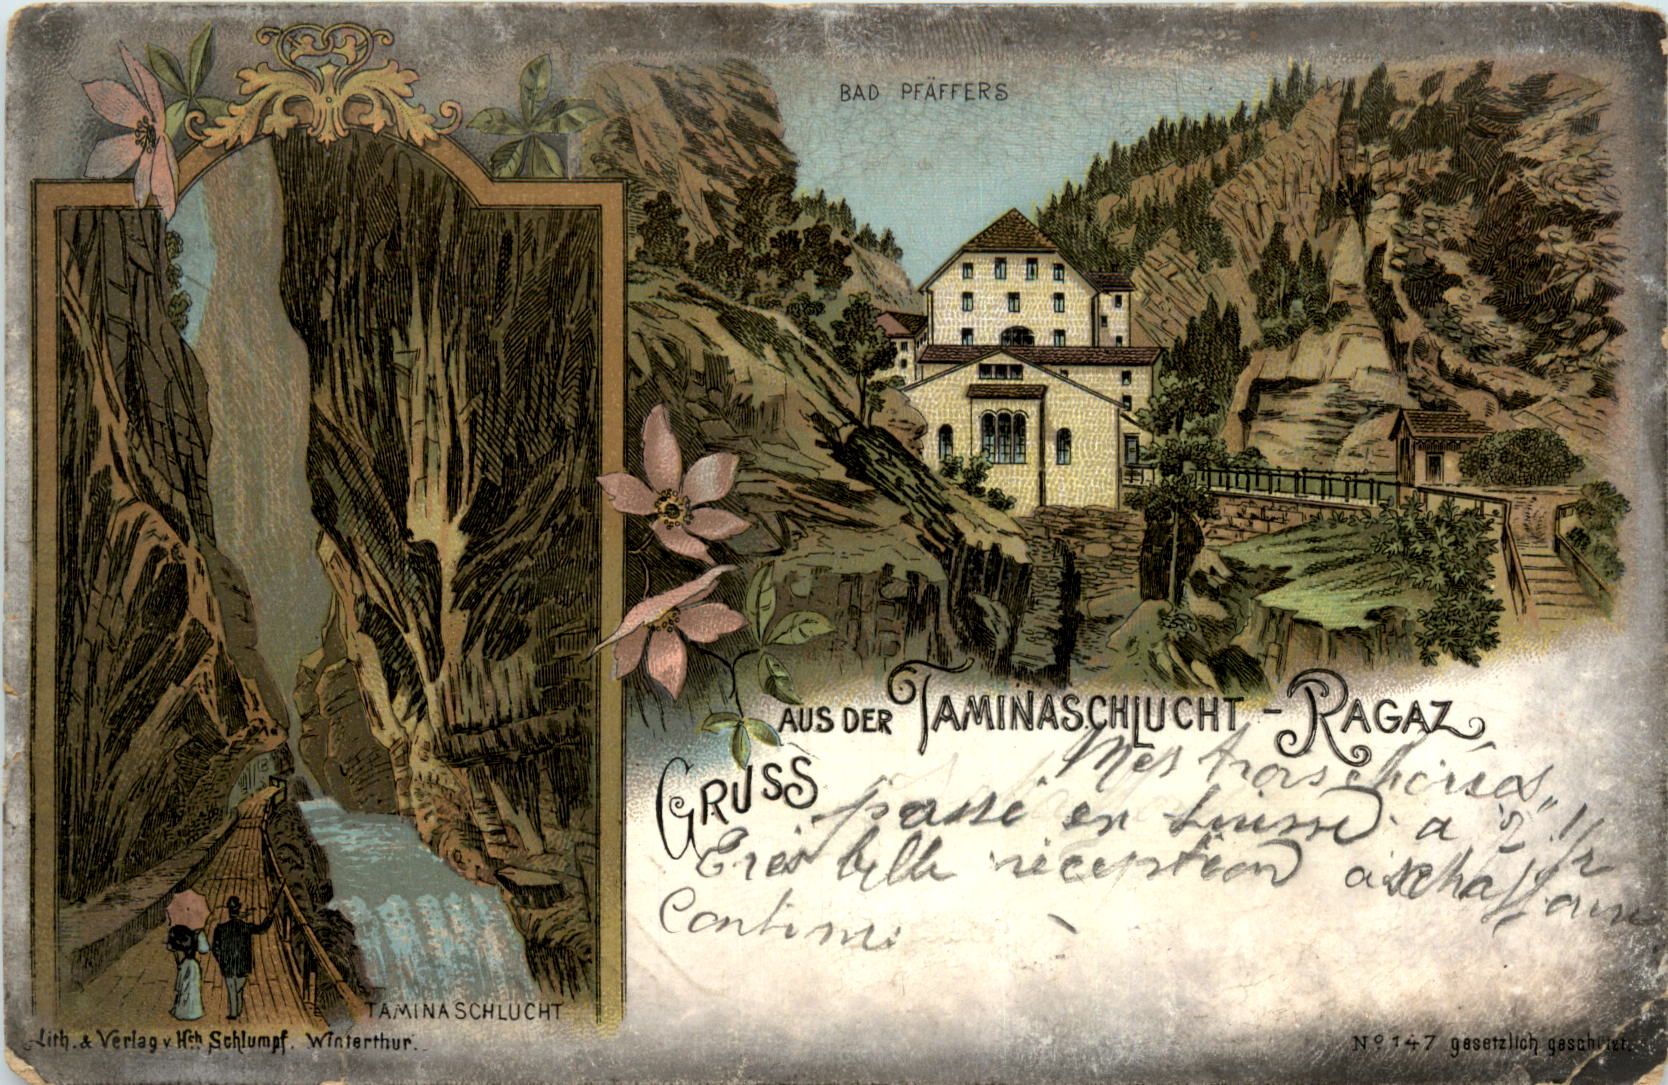 BAD PFÄFFERS
GRUSS AUS DER TAMINASCHLUCHT - RAGAZ
Mes trois chéries
passé en Suisse a 5 1/2
Très belle réception a
Continu
TAMINASCHLUCHT
Lith. & Verlag v. Hch Schlumpf. Winterthur.
No 147 gesetzlich geschützt.